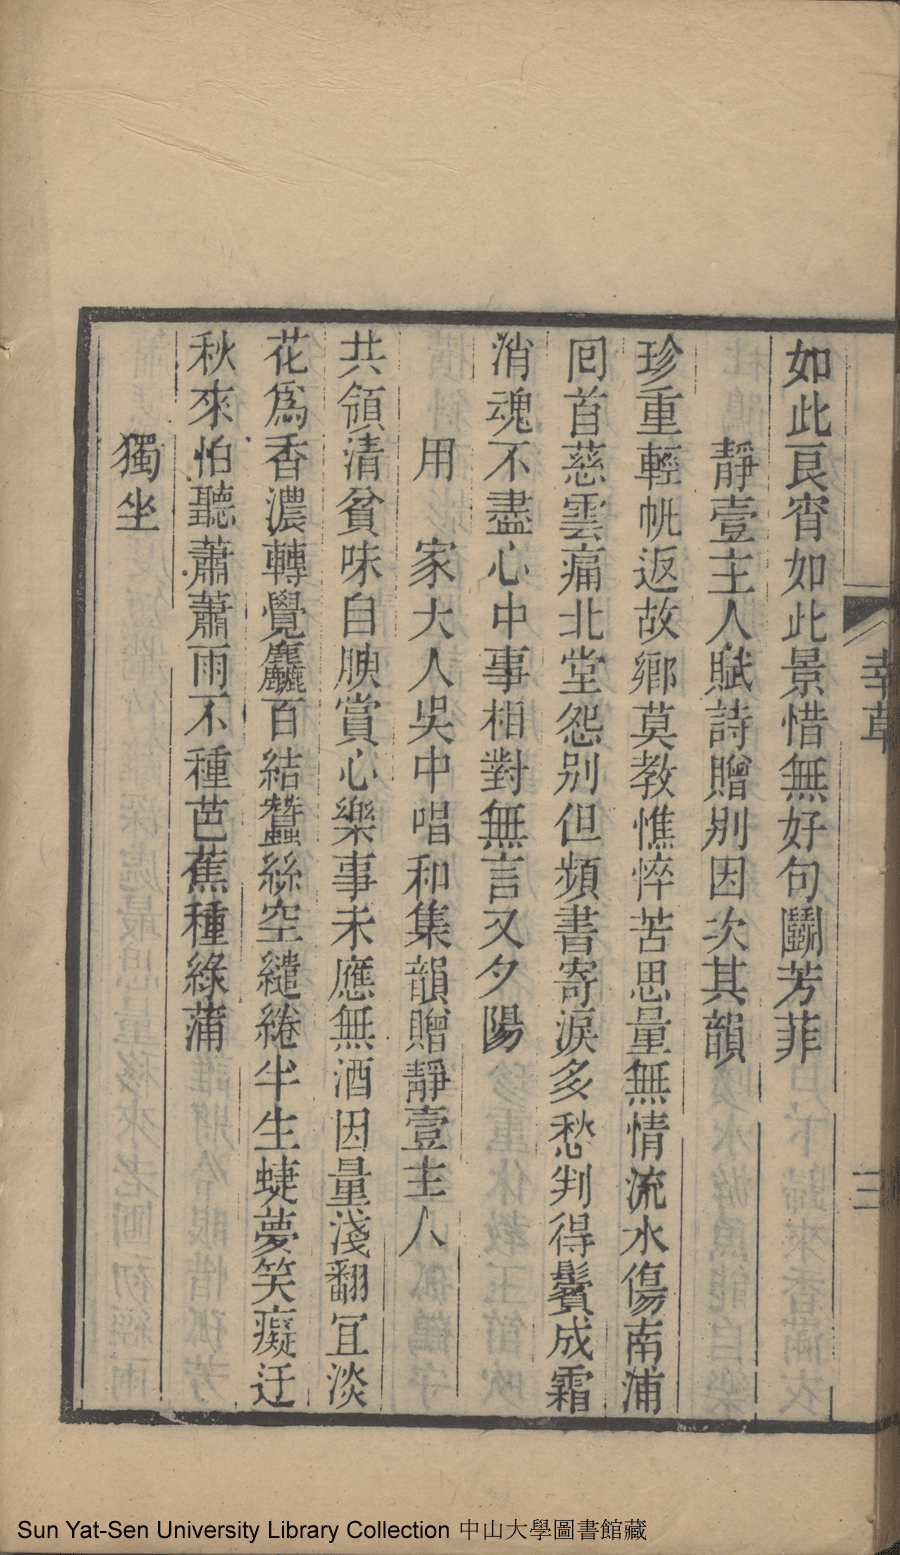 如此良宵如此景惜無好句鬬芳菲
靜壹主人賦詩贈別因次其韻
珍重輕帆返故鄉莫教憔悴苦思量無情流水傷南浦
囘首慈雲痛北堂怨别但頻書寄淚多愁判得鬢成霜
消魂不盡心中事相對無言又夕陽
用 家大人吳中唱和集韻贈靜壹主人
共領清貧味自腴賞心樂事未應無酒因量淺翻宜淡
花爲香濃轉覺麤百結蠶絲空繾綣半生蜨夢笑癡迂
秋來怕聽蕭蕭雨不種芭蕉種綠蒲
獨坐
三
Sun Yat-Sen University Library Collection 中山大學圖書館藏